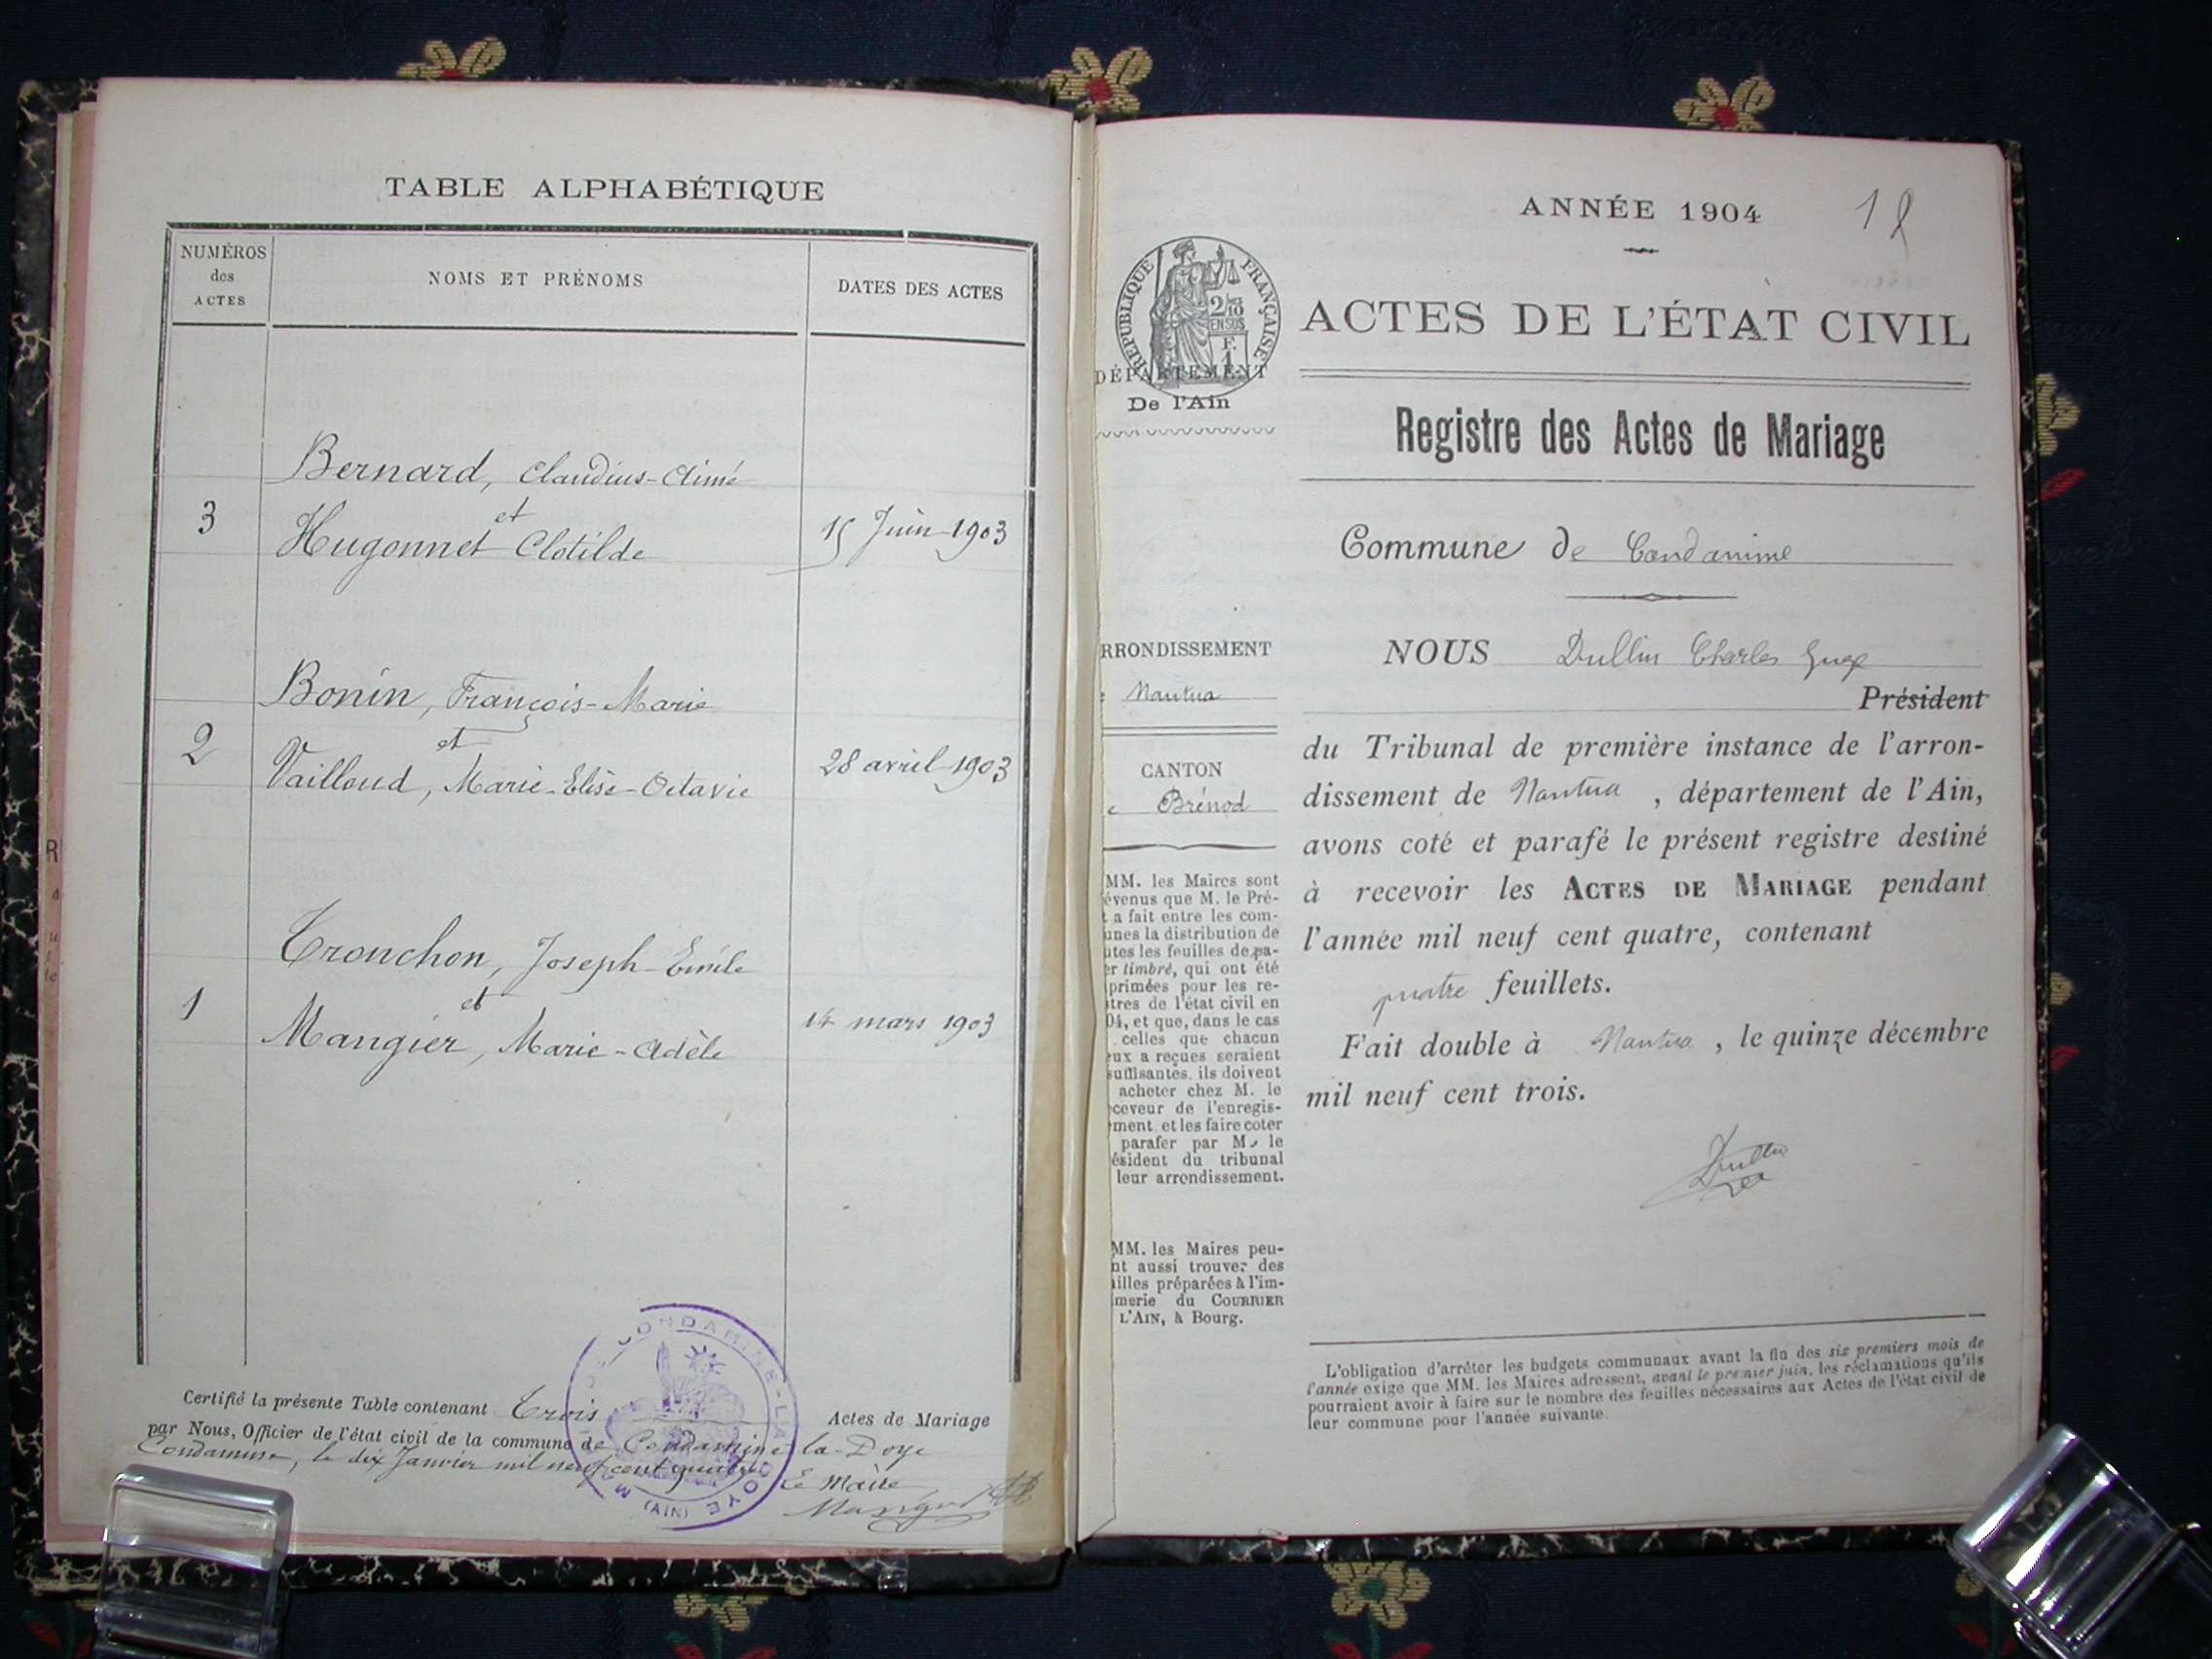 TABLE ALPHABÉTIQUE
NUMÉROS
des
ACTES
NOMS ET PRÉNOMS
DATES DES ACTES
Bernard, Claudius-Aimé
et
3
Hugonnet Clotilde
15 Juin 1903
Bonin, François-Marie
et
2
Vailloud, Marie-Elise-Octavie
28 avril 1903
Tronchon, Joseph-Emile
et
1
Mangier, Marie-Adèle
14 mars 1903
Certifié la présente Table contenant Trois Actes de Mariage
par Nous, Officier de l'état civil de la commune de Condamine-la-Doye
Condamine, le dix Janvier mil neuf cent quatre
Le Maire
CONDAMINE-LA-DOYE (AIN)
ANNÉE 1904
18
RÉPUBLIQUE FRANÇAISE
2/10
EN SUS
F.
1
DÉPARTEMENT
De l'Ain
ACTES DE L'ÉTAT CIVIL
Registre des Actes de Mariage
Commune de Condamine
RRONDISSEMENT
Nantua
CANTON
Brénod
MM. les Maires sont
évenus que M. le Pré-
t a fait entre les com-
unes la distribution de
utes les feuilles de pa-
er timbré, qui ont été
primées pour les re-
tres de l'état civil en
04, et que, dans le cas
celles que chacun
eux a reçues seraient
suffisantes, ils doivent
acheter chez M. le
ceveur de l'enregis-
ment et les faire coter
parafer par M. le
ésident du tribunal
leur arrondissement.
MM. les Maires peu-
nt aussi trouver des
illes préparées à l'im-
merie du COURRIER
L'AIN, à Bourg.
NOUS Dullin Charles Juge
Président
du Tribunal de première instance de l'arron-
dissement de Nantua, département de l'Ain,
avons coté et parafé le présent registre destiné
à recevoir les ACTES DE MARIAGE pendant
l'année mil neuf cent quatre, contenant
quatre feuillets.
Fait double à Nantua, le quinze décembre
mil neuf cent trois.
Dullin
L'obligation d'arrêter les budgets communaux avant la fin des six premiers mois de
l'année exige que MM. les Maires adressent, avant le premier juin, les réclamations qu'ils
pourraient avoir à faire sur le nombre des feuilles nécessaires aux Actes de l'état civil de
leur commune pour l'année suivante.